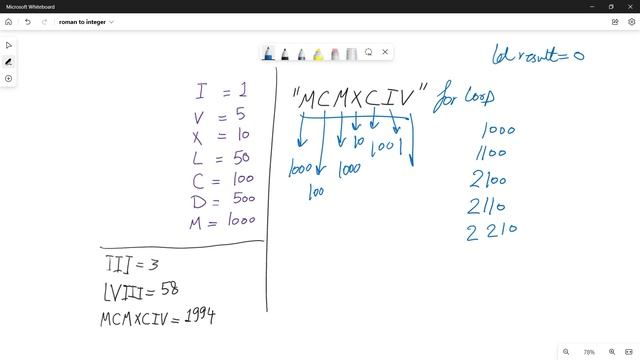 Microsoft Whiteboard
roman to integer
I = 1
V = 5
X = 10
L = 50
C = 100
D = 500
M = 1000
III = 3
LVIII = 58
MCMXCIV = 1994
"MCMXCIV"
1000
100
1000
10
100
1
for loop
let result = 0
1000
1100
2100
2110
2210
78%